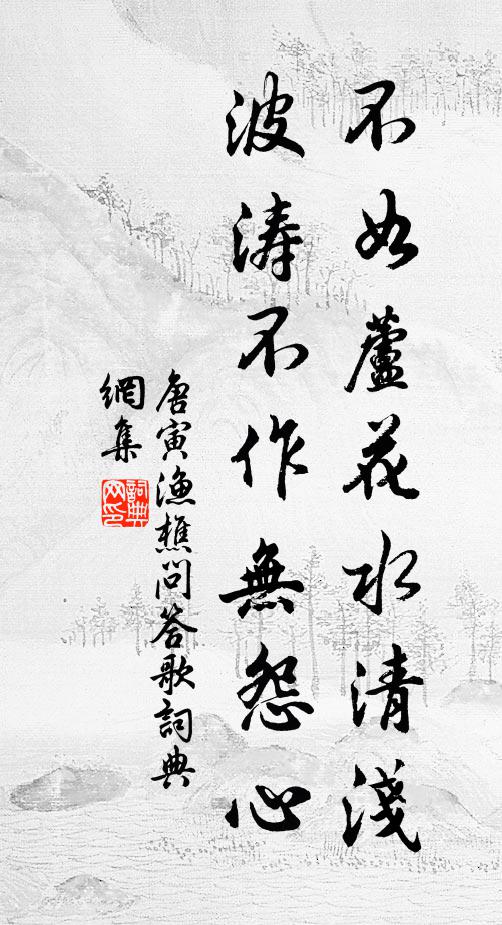 不如蘆花水清淺
波濤不作無怨心
唐寅漁樵問答歌詞典
網集
詞典
网印